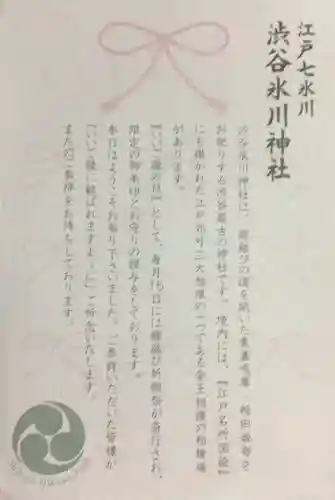 江戸七氷川
渋谷氷川神社
渋谷氷川神社は、縁結びの道を開いた素盞嗚尊 稲田姫命を
お祀りする渋谷最古の神社です。境内には、『江戸名所図絵』
にも描かれた江戸郊外三大相撲の一つである金王相撲の相撲場
があります。
『いい縁の日』として、毎月15日には縁結び祈願祭が斎行され、
限定の御朱印とお守りの授与をしております。
本日はようこそお参り下さいました。ご参拝いただいた皆様が
『いいご縁に結ばれますように』ご祈念いたします。
またのご参拝をお待ちしております。